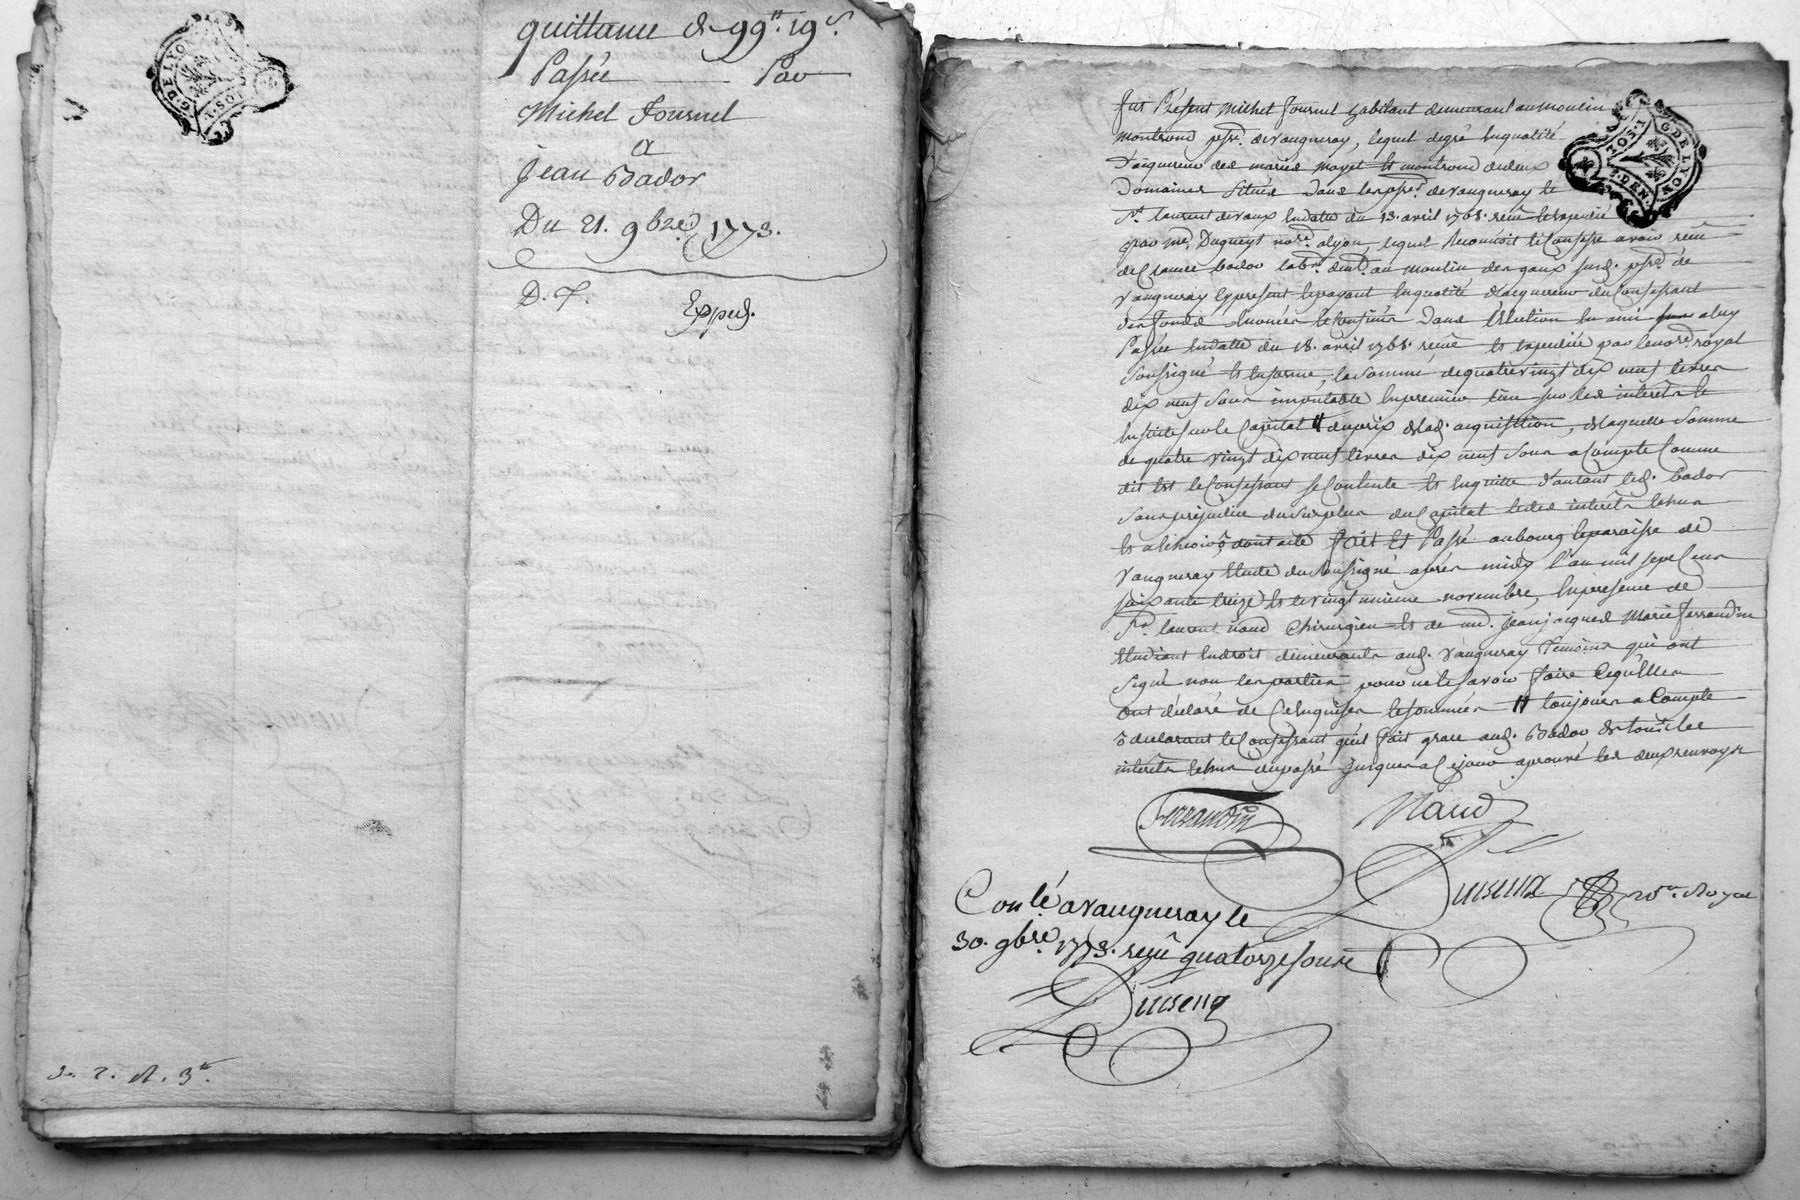 quittance de 99ᵗᵗ. 19ˢ.
Passée Par
Michel Fournel
a
Jean Bador
Du 21. 9bre 1773.
D. F. Exppée.
G. DE LYON
Fut Présent Michel Fournel habitant demeurant au moulin
montrond psse. de vaugneray, lequel de gré en qualité
d'aquereur des mariés mayet et montrond de deux
Domaines situés dans les psses. de vaugneray et
St. laurent de vaux en datte du 13. avril 1768. reçu et expedié
par me. Dugueyt nore. a lyon, lequel reconnoit et confesse avoir reçu
de Claude bador labr. demt. au moulin des gaux susd. psse. de
vaugneray cy present et payant en qualité d'acquereur du Confessant
des fonds énoncés et confinés dans l'élection en ami a luy
Passée en datte du 18. avril 1768. reçuë et expediée par le nore. royal
soussigné et en forme, la somme de quatre vingt dix neuf livres
dix neuf sous imputable en premier lieu sur les interêts et
ensuite sur le Capital # du prix de lad. acquisition, de laquelle somme
de quatre vingt dix neuf livres dix neuf sous a compte comme
dit est le Confessant se Contente et en quitte d'autant led. bador
sans préjudice du surplus du Capital et des interêts echus
et a echeoir, dont acte fait et Passé au bourg et paroisse de
vaugneray etude du soussigné après midy l'an mil sept cent
soixante treize et le vingt unieme novembre, en presence de
Sr. laurent naud Chirurgien et de md. jean jacques Marie ferrandin
etudiant en droit demeurants aud. vaugneray temoins qui ont
signé non les parties pour ne le savoir faire ce qu'elles
ont déclaré de ce enquises et sommées # toujours a Compte
déclarant le Confessant qu'il fait grace aud. Bador de tous les
interêts echus du passé jusques a ce jour aprouvé les deux renvoys
Ferrandin Naud
nore. Royal
Conlé. a vaugneray le
30. 9bre. 1773. reçu quatorze sous
G. DE LYON